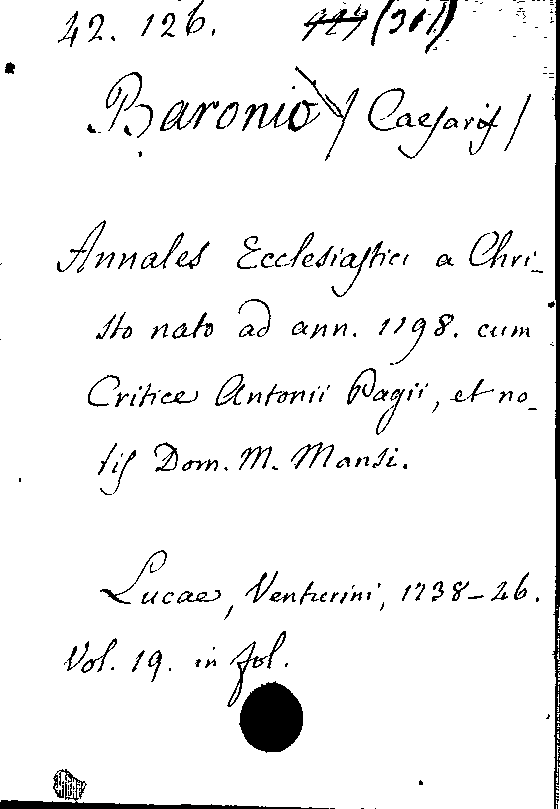 42. 126. 444 (301)
Baronio / Caesaris /
Annales Ecclesiastici a Chri_
sto nato ad ann. 1198. cum
Critice Antonii Pagii, et no_
tis Dom. M. Mansi.
Lucae, Venturini, 1738-46.
Vol. 19. in fol.